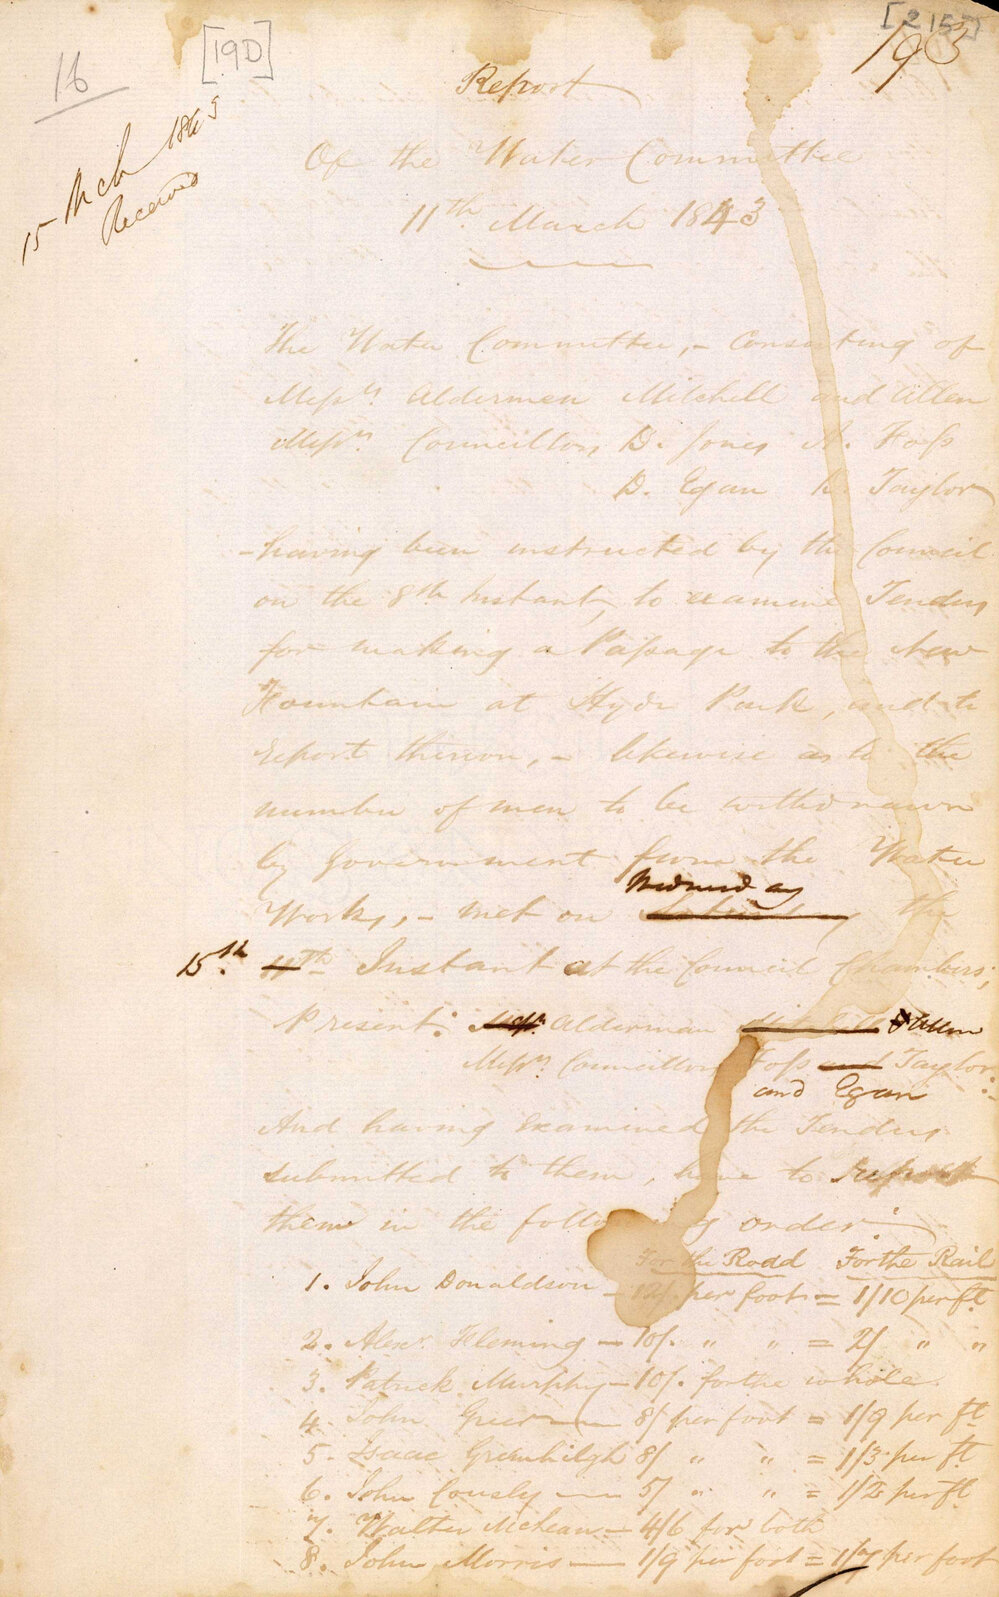 [215]
193
[19D]
16
15 Mch 1843
Received
Report
Of the Water Committee
11th March 1843
The Water Committee, - Consisting of
Messrs. Aldermen Mitchell and Allen
Messrs. Councillors D. Jones A. Foss
D. Egan Taylor
- having been instructed by the Council
on the 8th Instant, to examine Tenders
for making a Passage to the New
Fountain at Hyde Park, and to
report thereon, - likewise as to the
number of men to be withdrawn
by Government from the Water
Wednesday
Works, - met on Saturday the
15th. 11th Instant at the Council Chambers;
Present: Messrs. Alderman Mitchell Allen
Messrs Councillors Foss and Taylor :-
and Egan
And having examined the Tenders
submitted to them, have to report
them in the following order :
For the Road For the Rail
1. John Donaldson - 12/. per foot = 1/10 per ft
2. Alexr. Fleming - 10/. " " = 2/ " "
3. Patrick Murphy - 10/. for the whole.
4. John Greer - 8/ per foot = 1/9 per ft
5. Isaac Greenhilgh 8/ " " = 1/3 per ft
6. John Cously - 5/ " " = 1/2 per ft
7. Walter McLean - 4/6 for both
8. John Morris - 1/9 per foot = 1/7 per foot